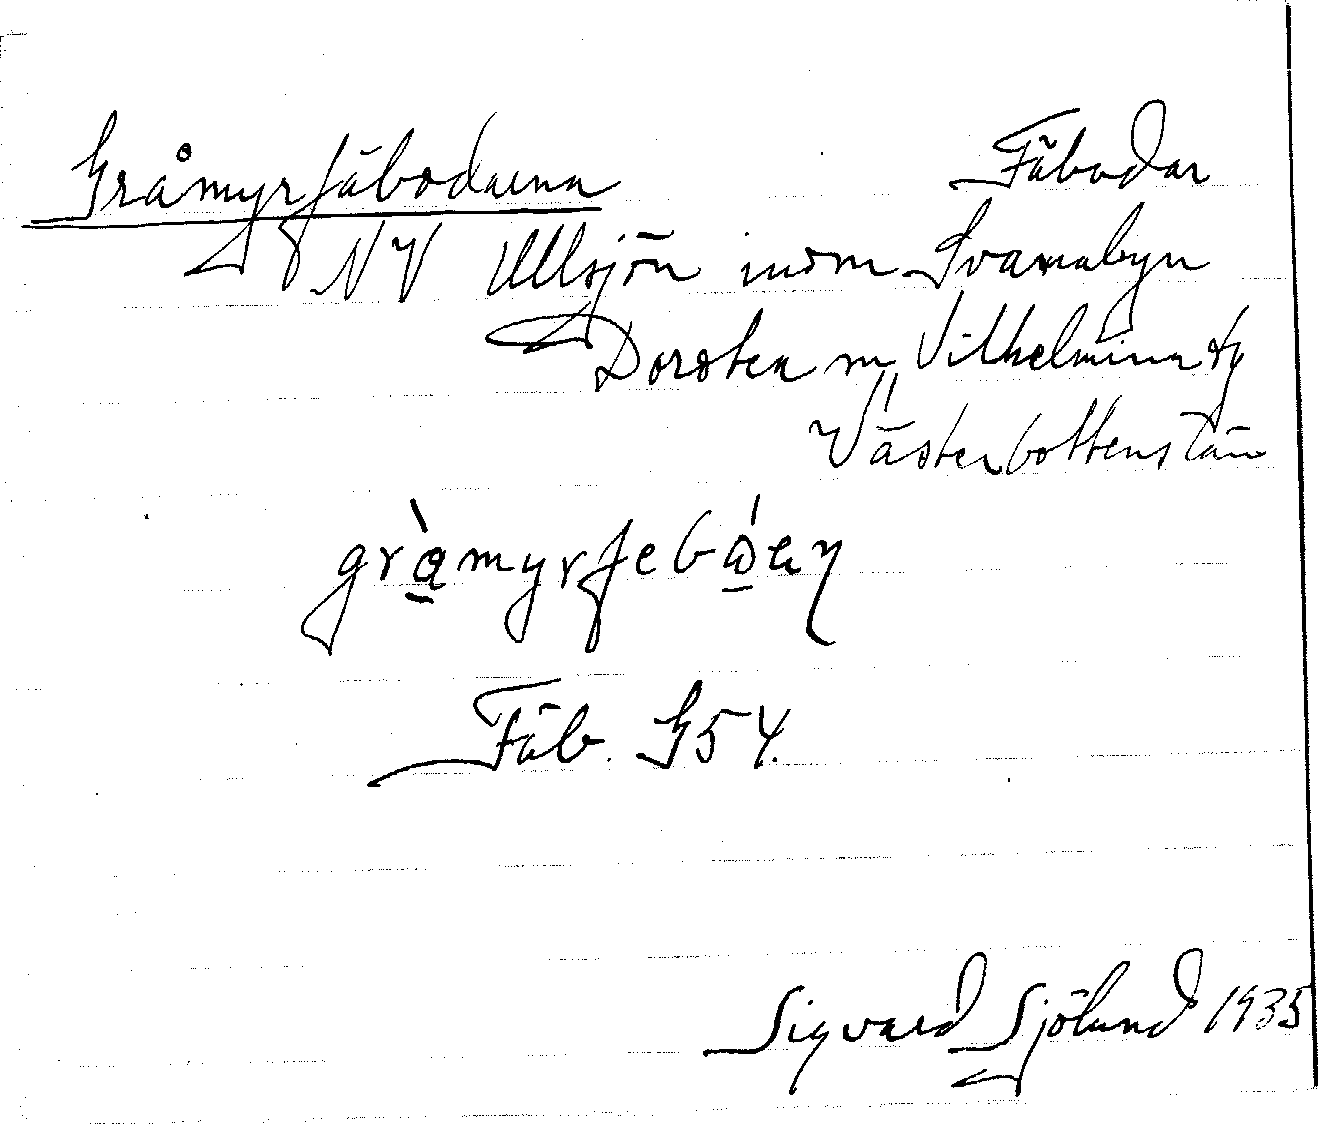 Gråmyrfäbodarna Fäbodar
NV Ullsjön inom Svanabyn
Dorotea m, Vilhelmina tg
Västerbottens län
grà̱myrfebɷ̱́ɷaṇ
Fäb. G54.
Sigvard Sjölund 1935